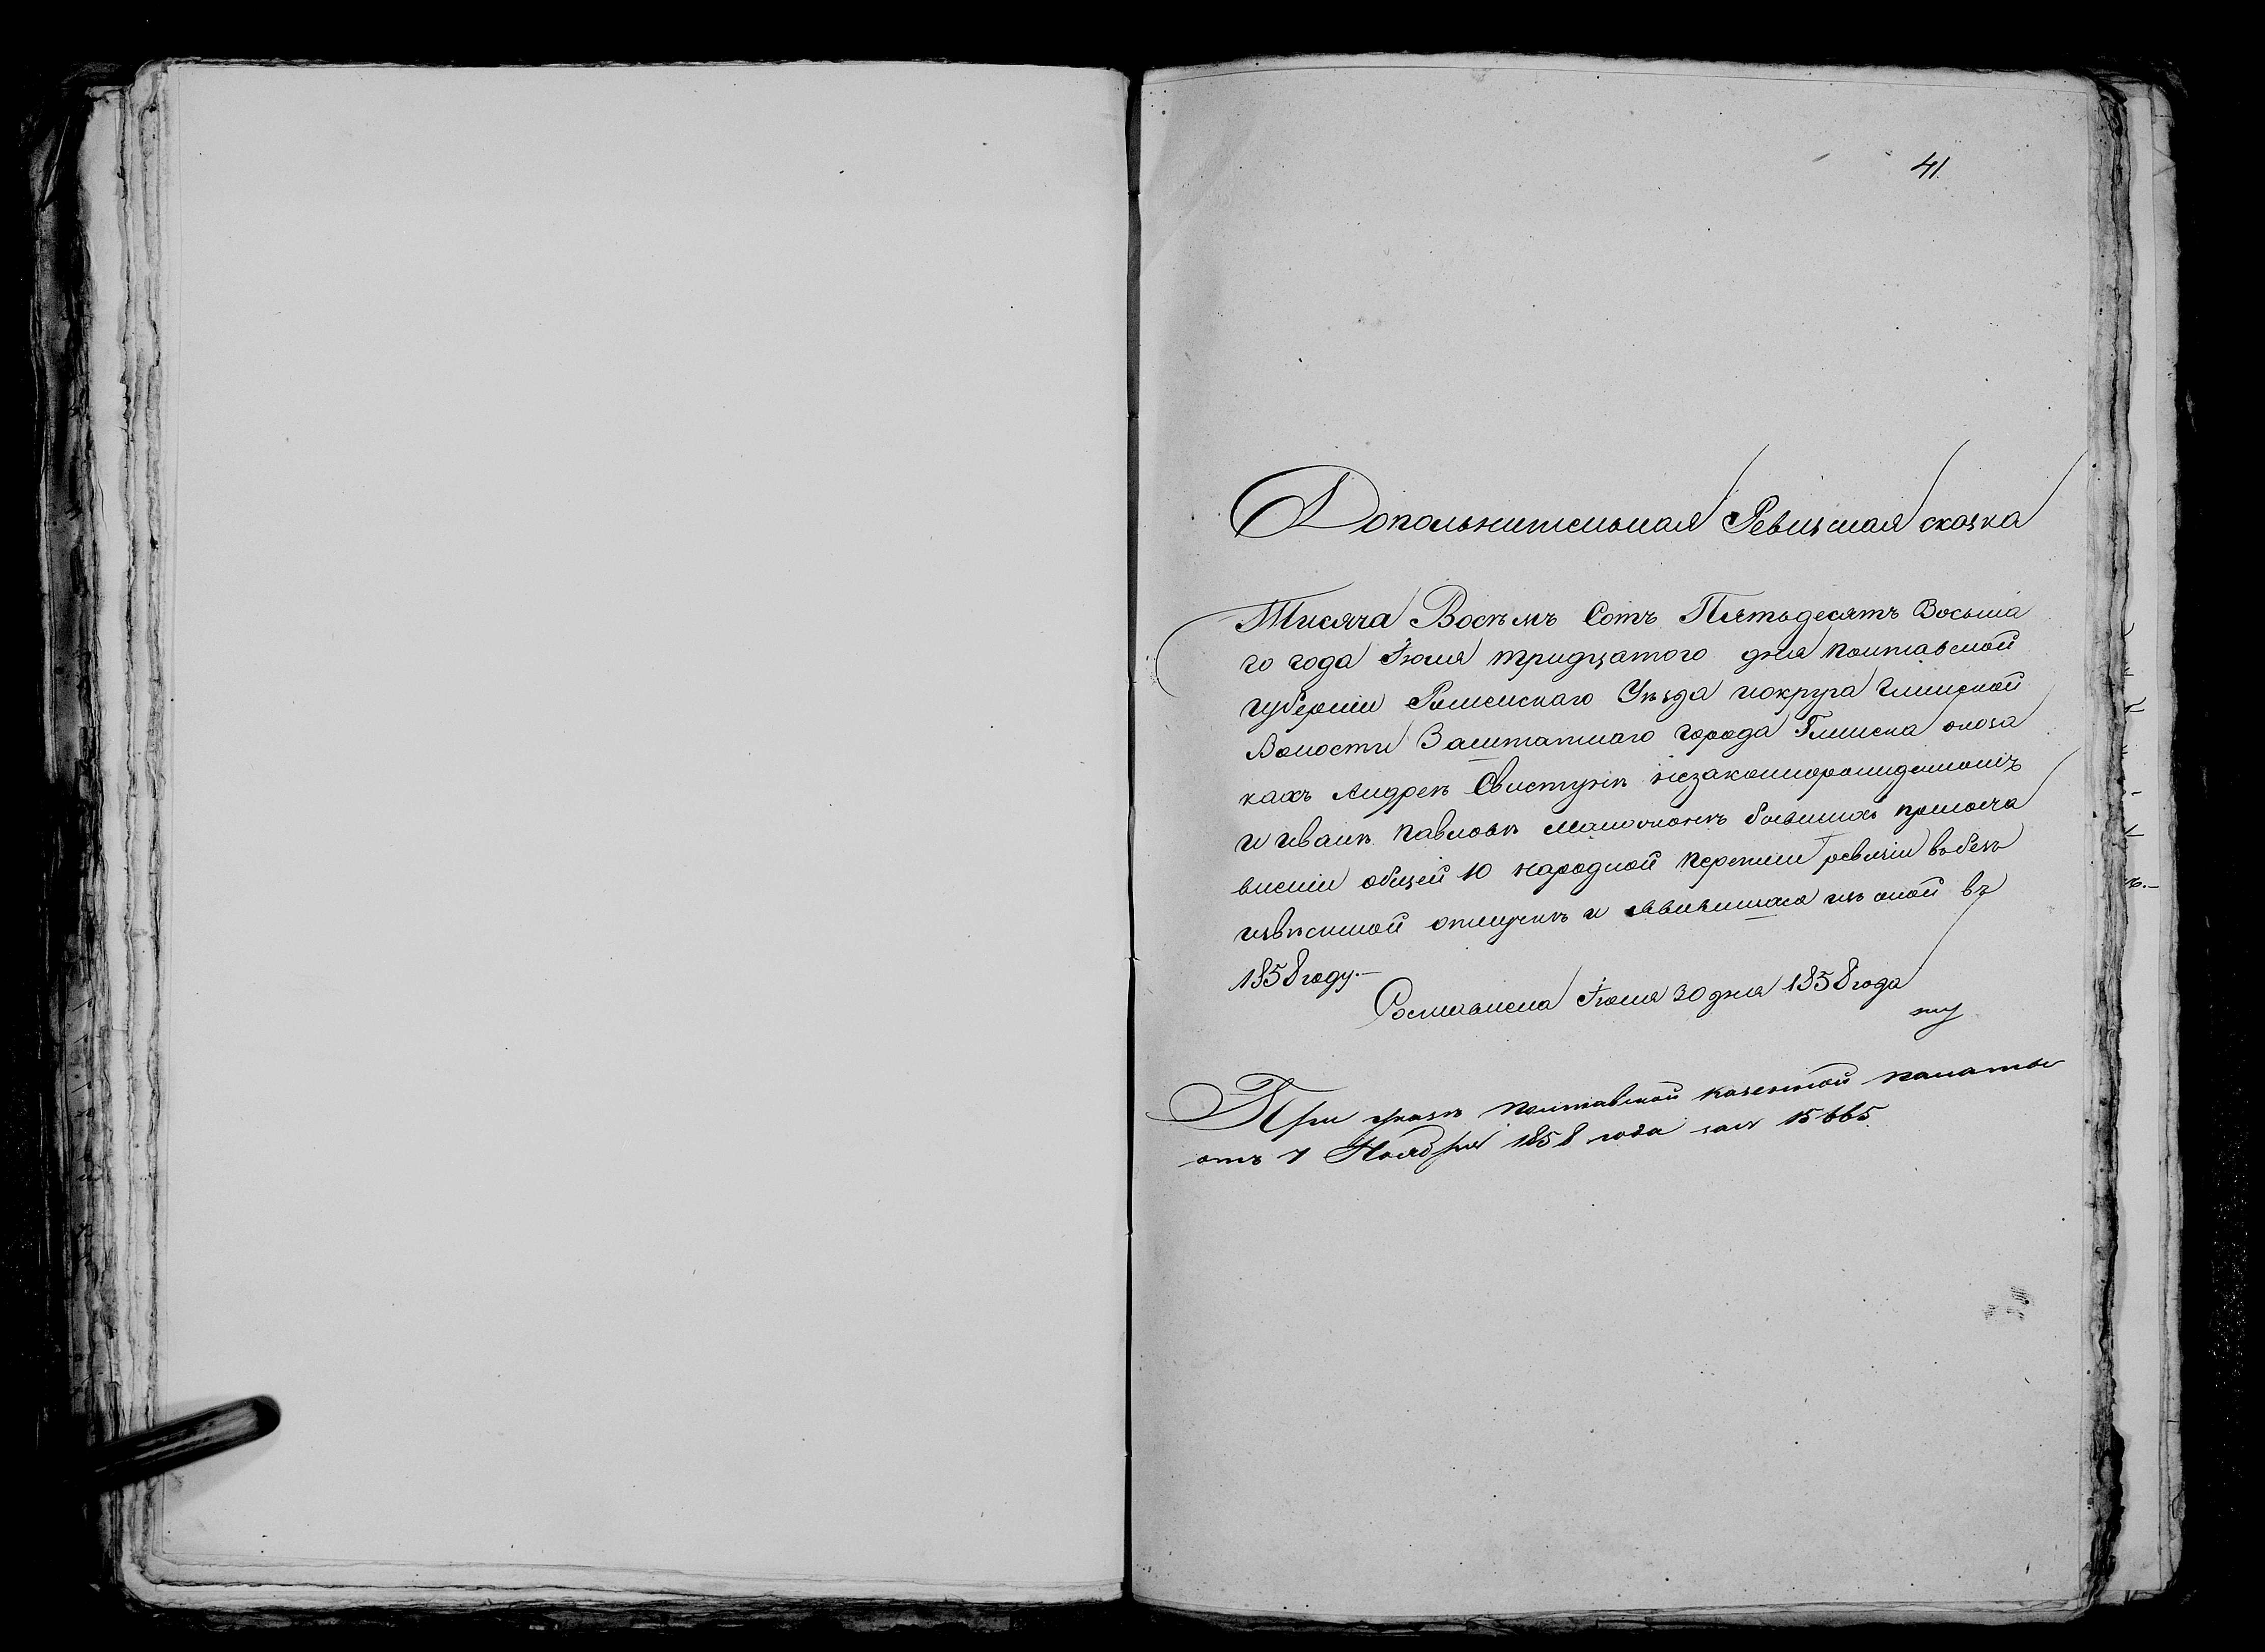 41
Дополнительная Ревизская сказка
Тисяча Восѣмъ Сотъ Пятьдесятъ Восьма
го года Іюля тридцатого дня Полтавской
губерніи Роменскаго Уѣзда и округа Глинской
Волости Заштатнаго города Глинска о коза
кахъ Андреѣ Свистунѣ незаконнорожденномъ
и Иванѣ Павловѣ бывшихъ при
общей 10 народной переписи ревизіи въ без
извѣсной отлучкѣ и явившихся изъ оной въ
1858 году.—
Составлена Іюля 30 дня 1858 года
При указѣ Полтавской казенной палаты
отъ 7 Ноября 1858 года за № 15665.